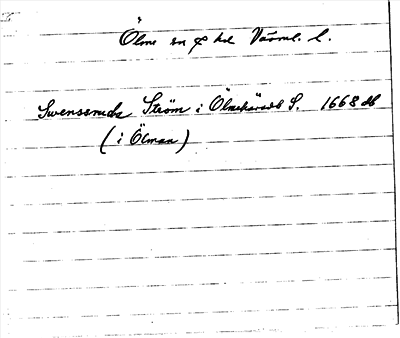 Ölme sn o hd Värml. l.
Swensruda Ström i Ölmehärads S. 1668 db
(i Ölman)